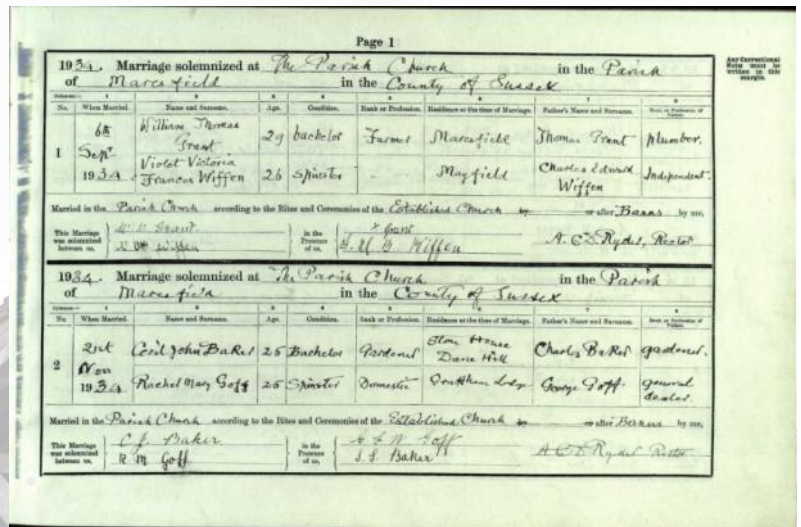 Page 1
1934. Marriage solemnized at The Parish Church in the Parish
of Maresfield in the County of Sussex
Any Correctional Note must be written in this margin.
No. When Married. Name and Surname. Age. Condition. Rank or Profession. Residence at the time of Marriage. Father's Name and Surname. Rank or Profession of Father.
1 6th Sept 1934 William Thomas Grant 29 bachelor Farmer Maresfield Thomas Grant Plumber.
Violet Victoria Frances Wiffen 26 Spinster - Mayfield Charles Edward Wiffen Independent.
Married in the Parish Church according to the Rites and Ceremonies of the Established Church by or after Banns by me,
This Marriage was solemnized between us, W. T. Grant in the Presence of us, Grant A. C. D. Ryder, Rector
Wiffen Wiffen
1934. Marriage solemnized at The Parish Church in the Parish
of Maresfield in the County of Sussex
No. When Married. Name and Surname. Age. Condition. Rank or Profession. Residence at the time of Marriage. Father's Name and Surname. Rank or Profession of Father.
2 21st Nov 1934 Cecil John Baker 25 Bachelor Gardener House Dane Hill Charles Baker gardener.
Rachel Mary Goff 25 Spinster Domestic Lodge George Goff general dealer.
Married in the Parish Church according to the Rites and Ceremonies of the Established Church by or after Banns by me,
This Marriage was solemnized between us, C. J. Baker in the Presence of us, Goff A C D Ryder Rector
R M Goff Baker